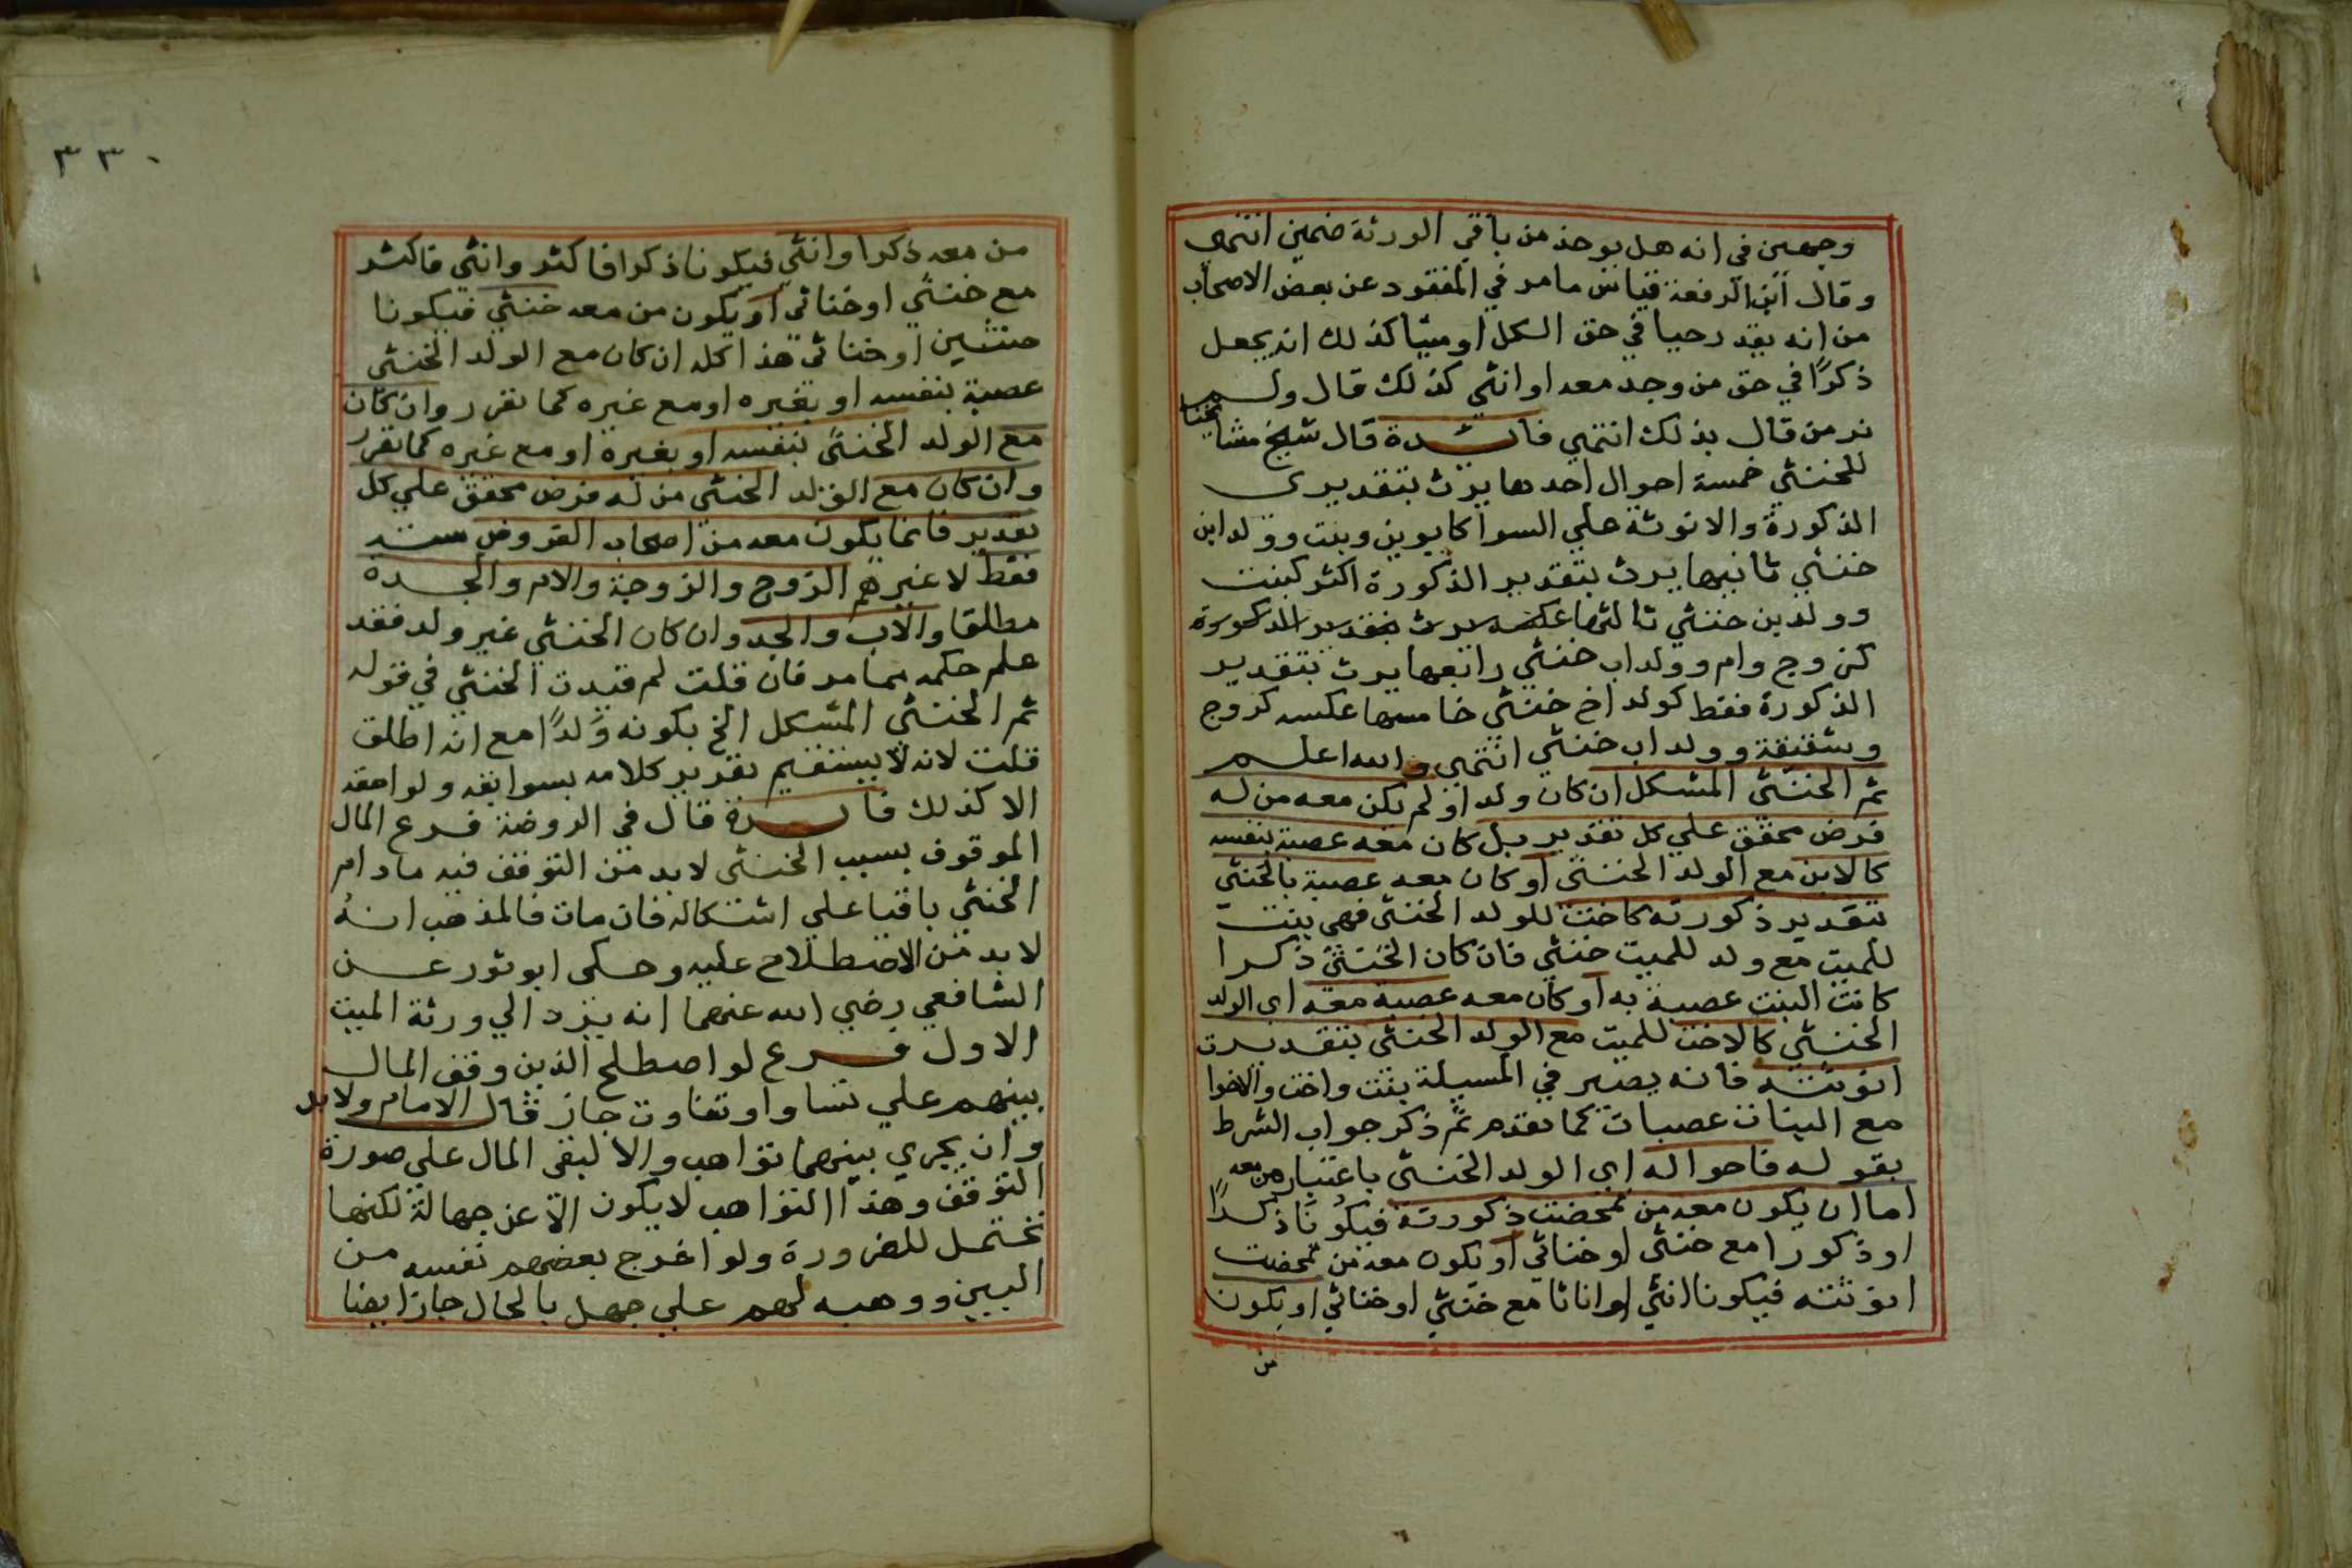 وجهين في انه هل يوخذ من باقي الورثة ضمين انتهى
وقال ابن الرفعة قياس ما مر في المفقود عن بعض الاصحاب
من انه يقدر حيا في حق الكل او ميتا كذلك انه يجعل
ذكرًا في حق من وجد معه او انثي كذلك قال ولم
نر من قال بذلك انتهي فائدة قال شيخ مشايخنا
للخنثي خمسة احوال احدها يرث بتقديرى
الذكورة والانوثة علي السوا كابوين وبنت وولد ابن
خنثي ثانيها يرث بتقدير الذكورة اكثر كبنت
وولد بن خنثي ثالثها عكسه يرث بتقدير الذكورة
كزوج وام وولد اب خنثي رابعها يرث بتقدير
الذكورة فقط كولد اخ خنثي خامسها عكسه كزوج
وشقيقة وولد اب خنثي انتهي والله اعلم
ثم الخنثي المشكل ان كان ولدا ولم يكن معه من له
فرض محقق علي كل تقدير بل كان معه عصبة بنفسه
كالابن مع الولد الخنثي او كان معه عصبة بالخنثي
بتقدير ذكورته كاخت للولد الخنثى فهي بنت
للميت مع ولد للميت خنثي فان كان الخنثي ذكرا
كانت البنت عصبة به او كان معه عصبة معه اي الولد
الخنثي كالاخت للميت مع الولد الخنثى بتقدير
انوثته فانه يصير في المسيلة بنت واخت والاخوا
مع البنات عصبات كما تقدم ثم ذكر جواب الشرط
بقوله فاحواله اي الولد الخنثى باعتبار من معه
اما ان يكون معه من تمحضت ذكورته فيكونا ذكرًا
او ذكورا مع خنثى او خناثي او يكون معه من تمحضت
انوثته فيكونا انثي او اناثا مع خنثي او خناثي او يكون
من
٣٣٠
من معه ذكرا وانثي فيكونا ذكرا فاكثر وانثي فاكثر
مع خنثي او خناثي او يكون من معه خنثي فيكونا
خنثيين او خناثى هذا كله ان كان مع الولد الخنثى
عصبة بنفسه او بغيره او مع غيره كما تقرر وان كان
مع الولد الخنثى بنفسه او بغيره او مع غيره كما تقرر
وان كان مع الولد الخنثى من له فرض محقق علي كل
تقدير فانما يكون معه من اصحاب الفروض ستة
فقط لا غيرهم الزوج والزوجة والام والجدة
مطلقا والاب والجد وان كان الخنثي غير ولد فقد
علم حكمه مما مر فان قلت لم قيدت الخنثي في قوله
ثم الخنثي المشكل الخ بكونه ولدًا مع انه اطلق
قلت لانه لا يستقيم تقرير كلامه بسوابقه ولواحقه
الا كذلك فائدة قال في الروضة فرع المال
الموقوف بسبب الخنثى لابد من التوقف فيه مادام
الخنثي باقيا علي اشكاله فان مات فالمذهب انه
لا بد من الاصطلاح عليه وحكى ابو ثور عن
الشافعي رضي الله عنهما انه يرد الي ورثة الميت
الاول فرع لو اصطلح الذين وقف المال
بينهم علي تساو او تفاوت جاز قال الامام ولابد
وان يجري بينهما تواهب والا لبقى المال علي صورة
التوقف وهذا التواهب لا يكون الا عن جهالة لكنها
تحتمل للضرورة ولو اخرج بعضهم نفسه من
البين ووهبه لهم علي جهل بالحال جاز ايضا